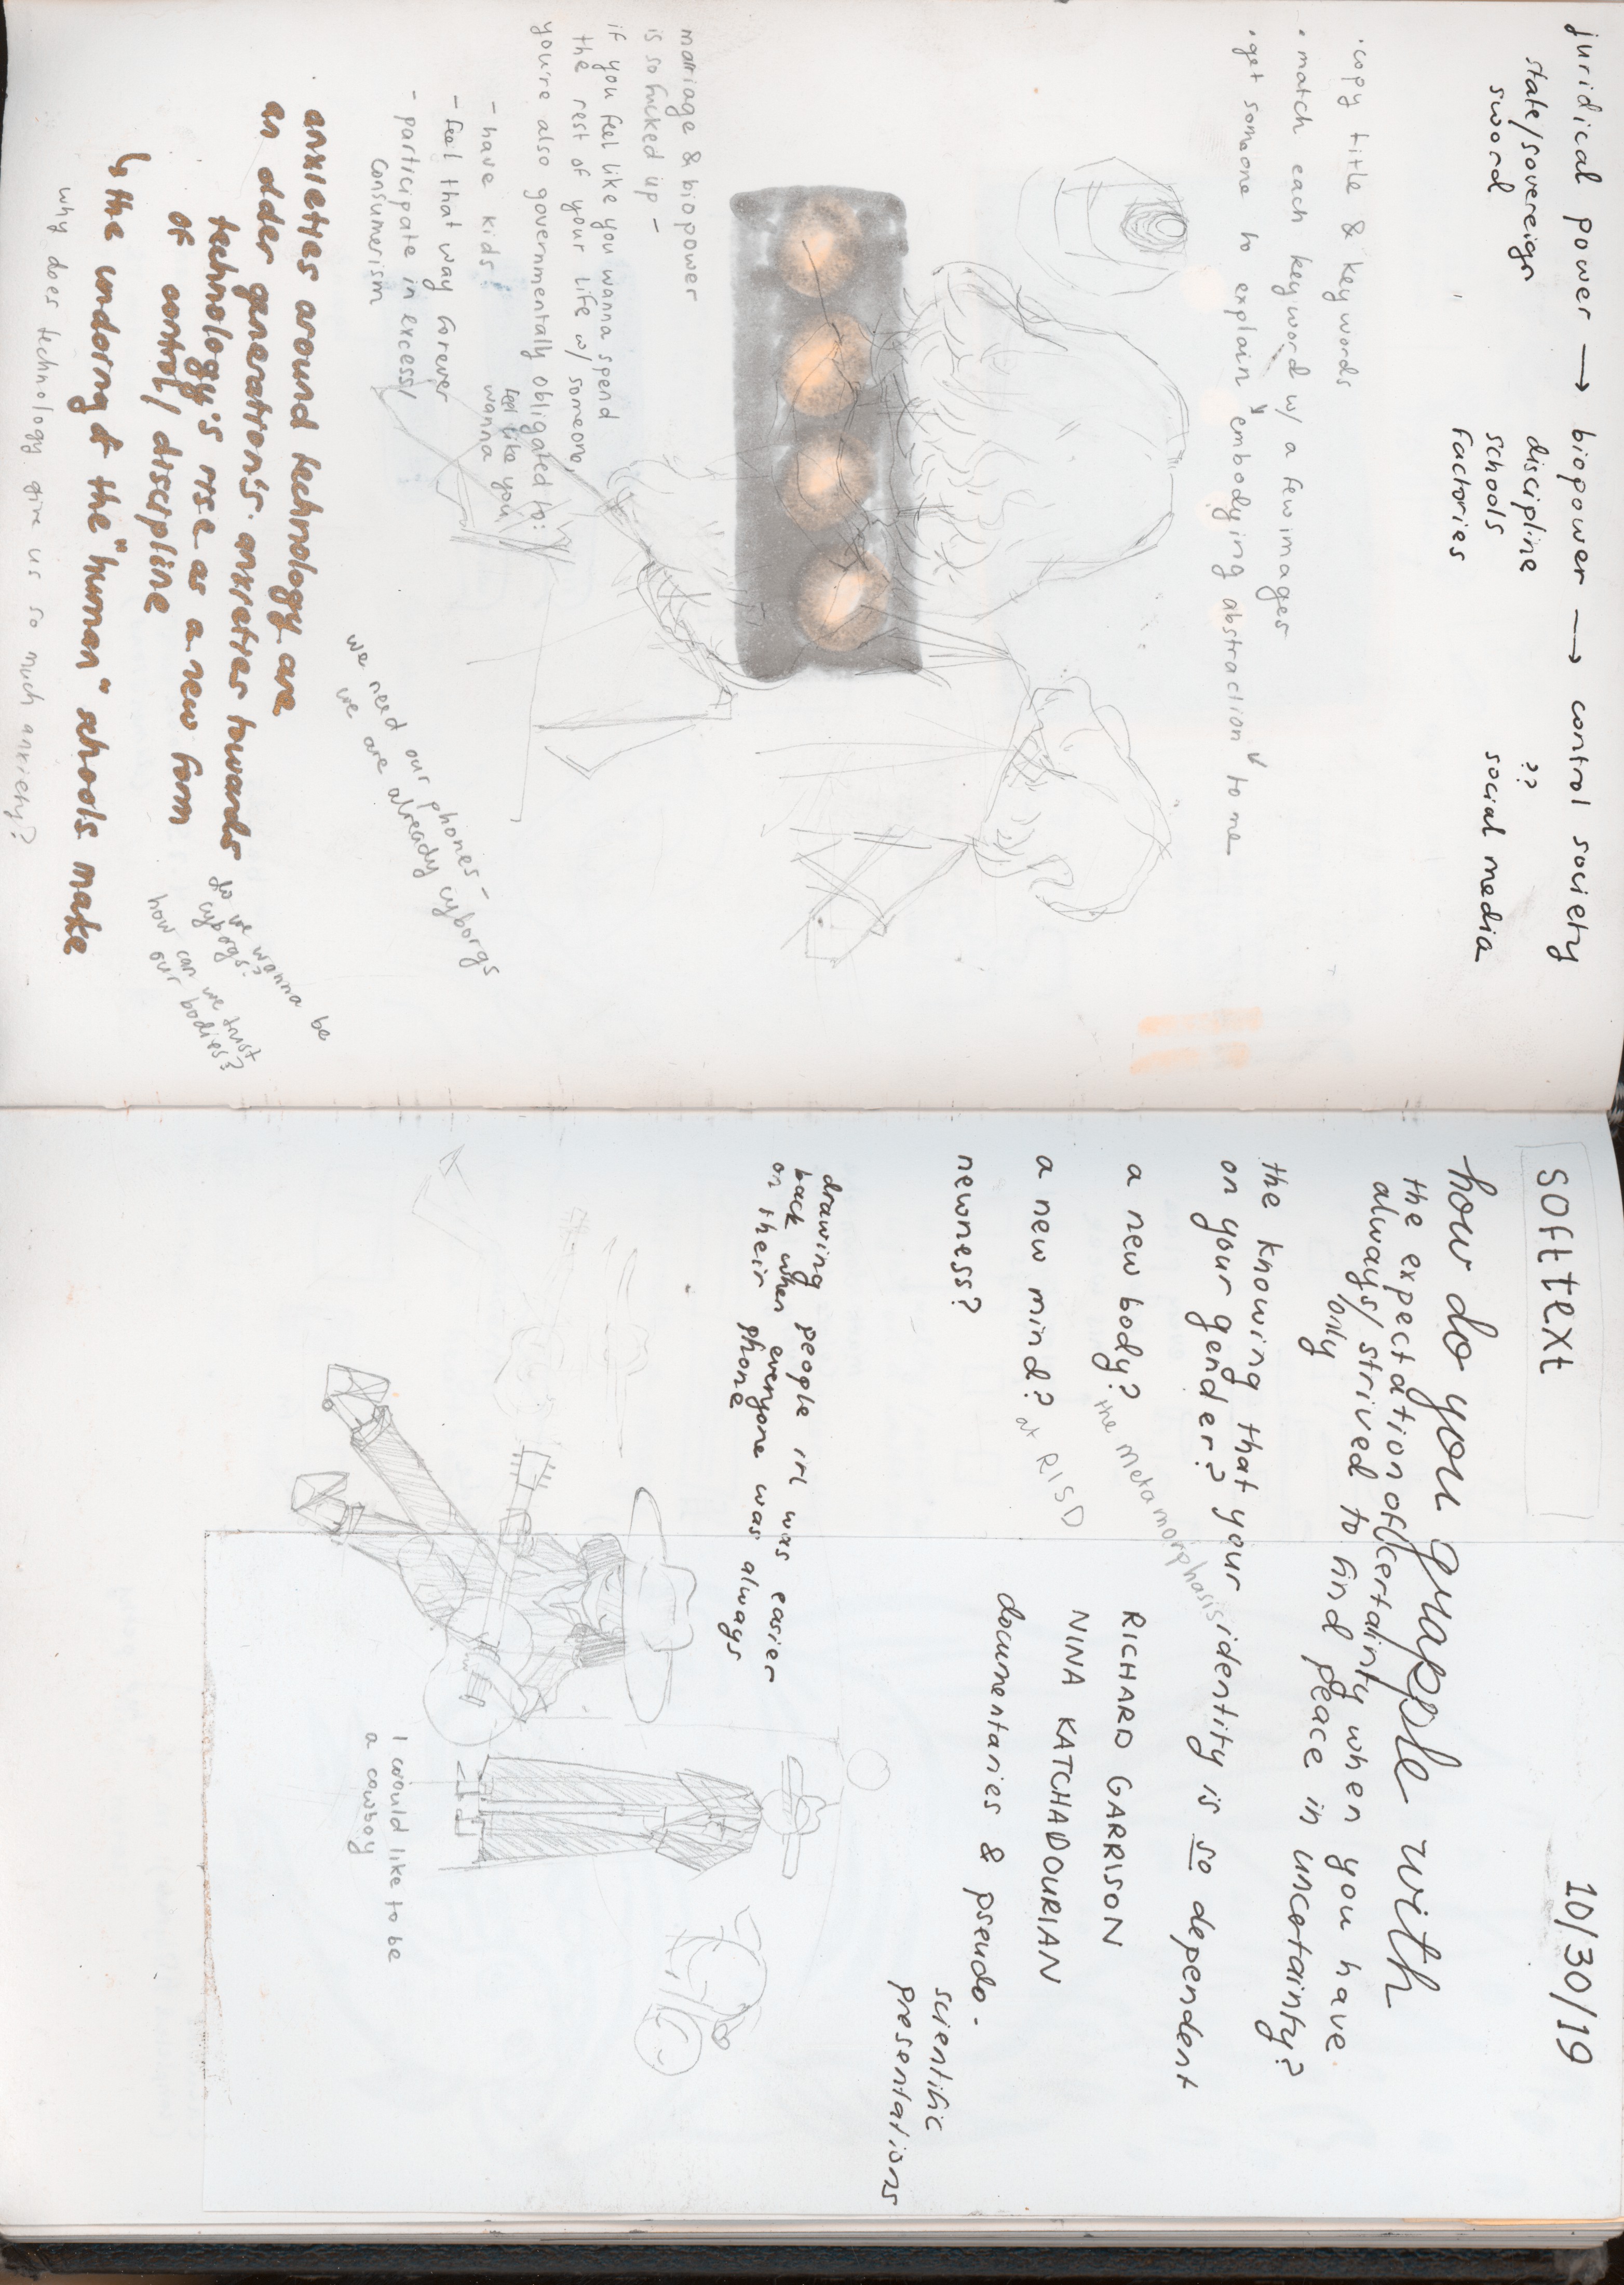 juridical power → biopower → control society
state/sovereign
sword
discipline
schools
factories
??
social media
• copy title & key words
• match each keyword w/ a few images
• get someone to explain "embodying abstraction" to me
marriage & biopower
is so fucked up -
if you feel like you wanna spend
the rest of your life w/ someone,
you're also governmentally obligated to:
- have kids
- feel that way forever
feel like you
wanna
- participate in excess/
consumerism
we need our phones -
we are already cyborgs
anxieties around technology are
an older generation's anxieties towards
technology's rise as a new form
of control/discipline
↳ the undoing of the "human" schools make
do we wanna be
cyborgs?
how can we trust
our bodies?
why does technology give us so much anxiety?
SOFT TEXT
10/30/19
how do you grapple with
the expectation of certainty when you have
always/strived to find peace in uncertainty?
only
the knowing that your identity is so dependent
on your gender?
a new body?
the metamorphasis
a new mind?
at RISD
newness?
RICHARD GARRISON
NINA KATCHADOURIAN
documentaries & pseudo-
scientific
presentations
drawing people irl was easier
back when everyone was always
on their phone
I would like to be
a cowboy